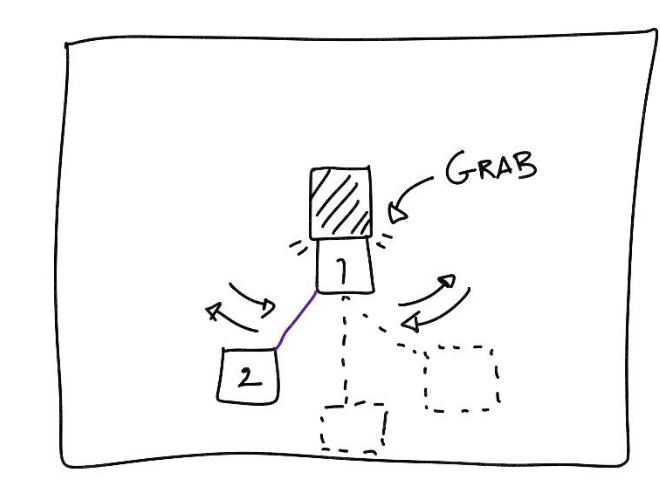 GRAB
1
2